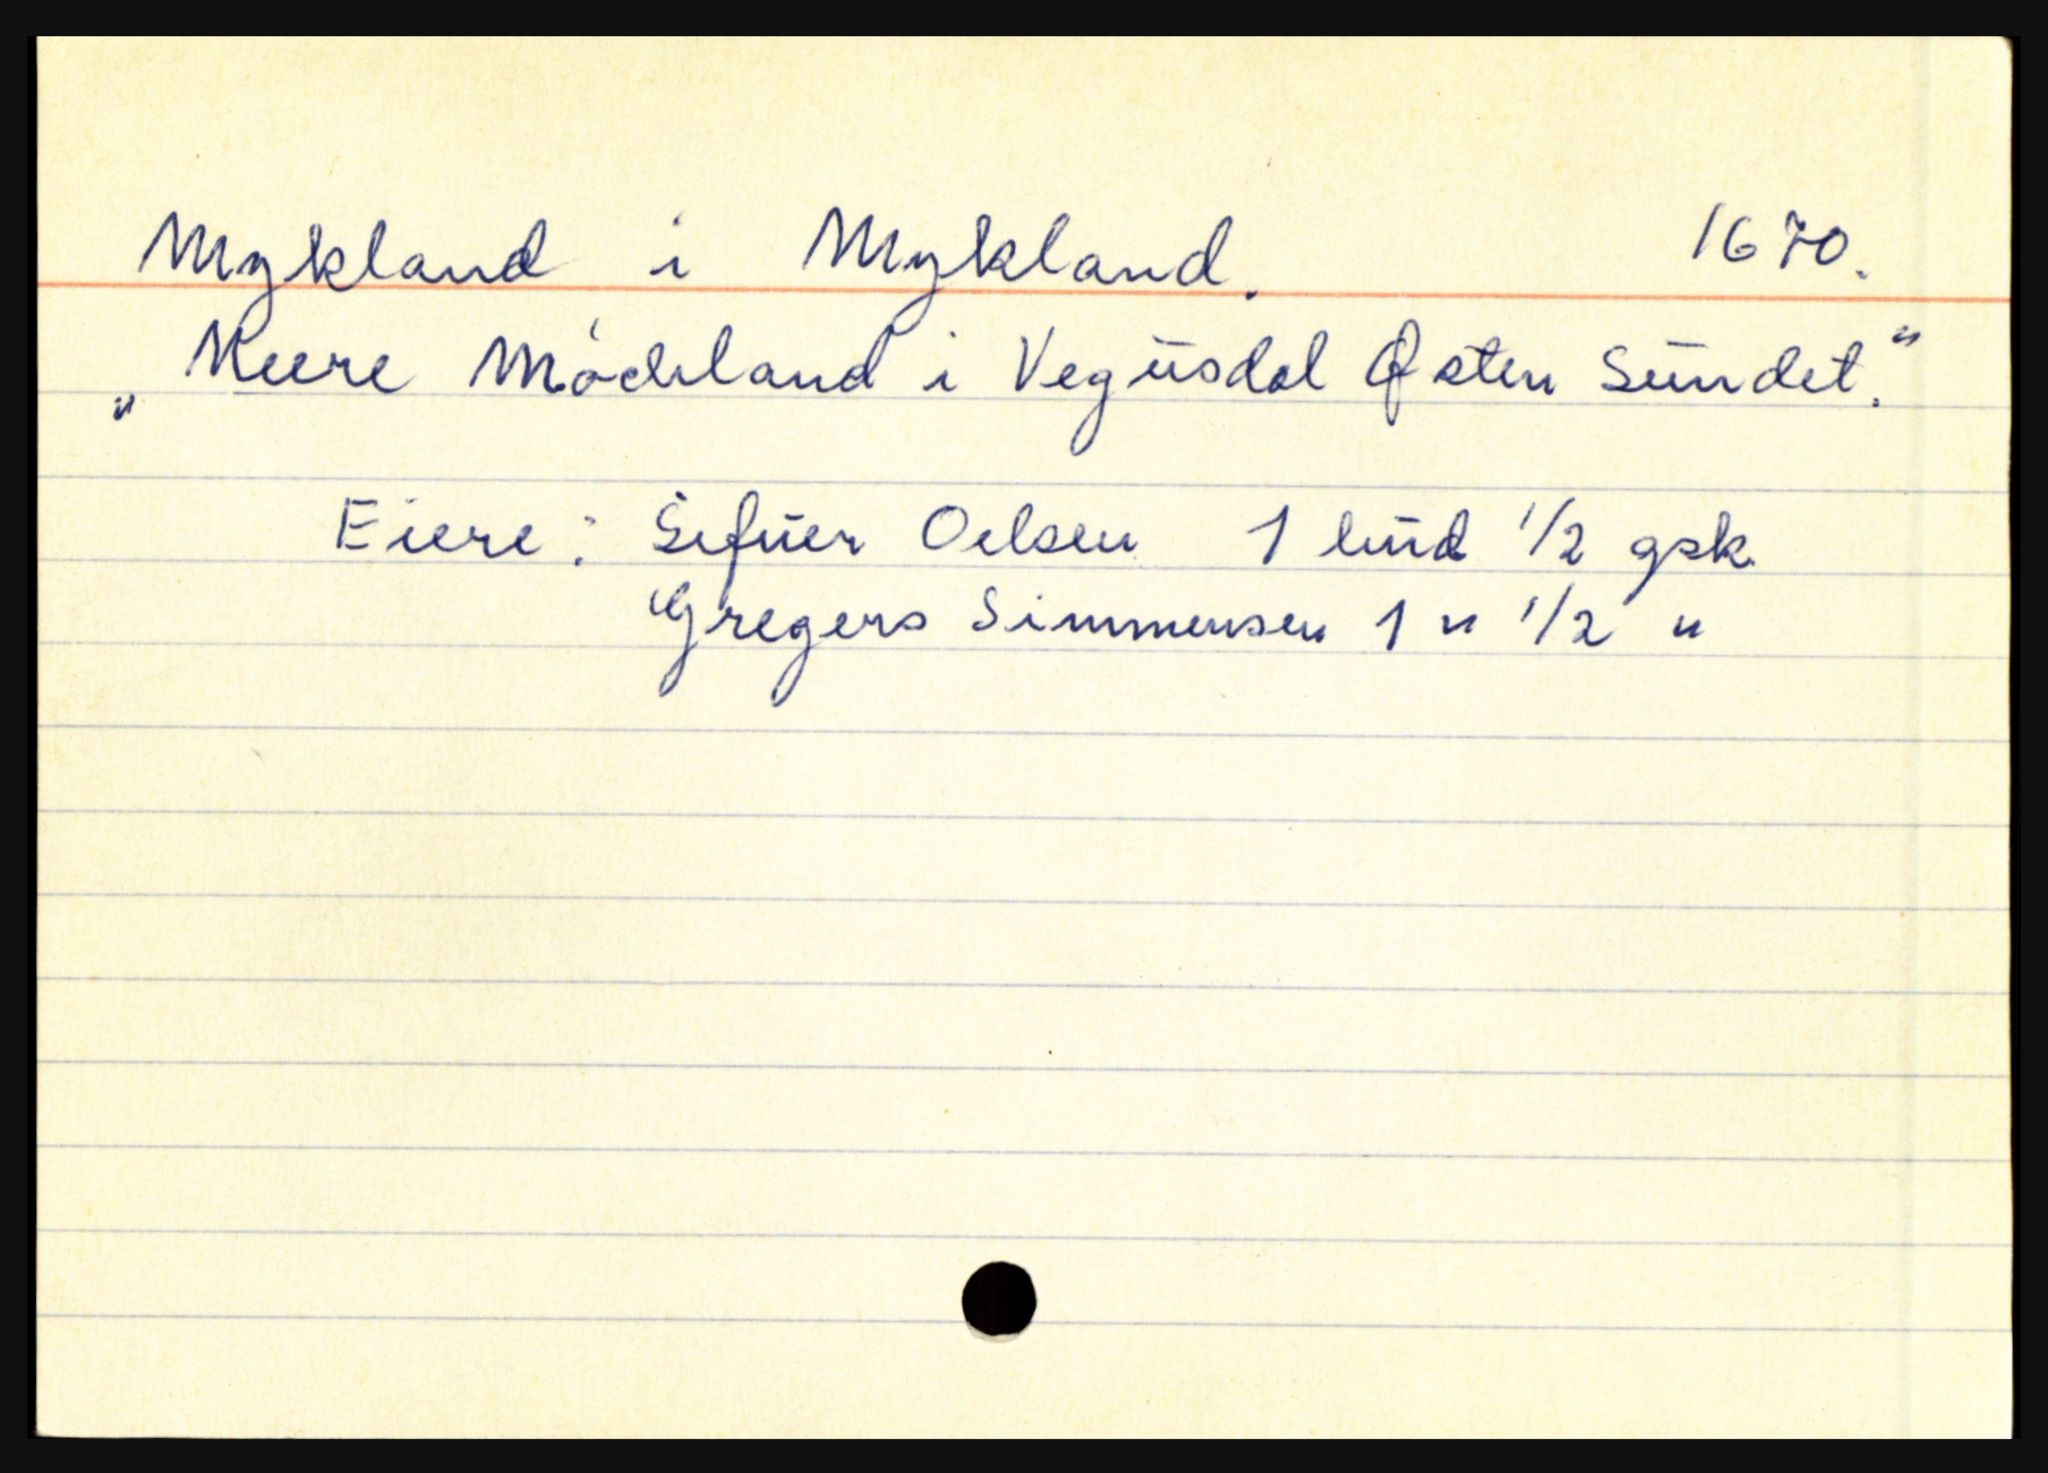 Mykland i Mykland. 1670.
„Meere Móchland i Vegüsdal Østen Sündet.“
Eiere: Sefüer Oelsen 1 hüd 1/2 gsk.
Gregers Simmensen 1 " 1/2 "